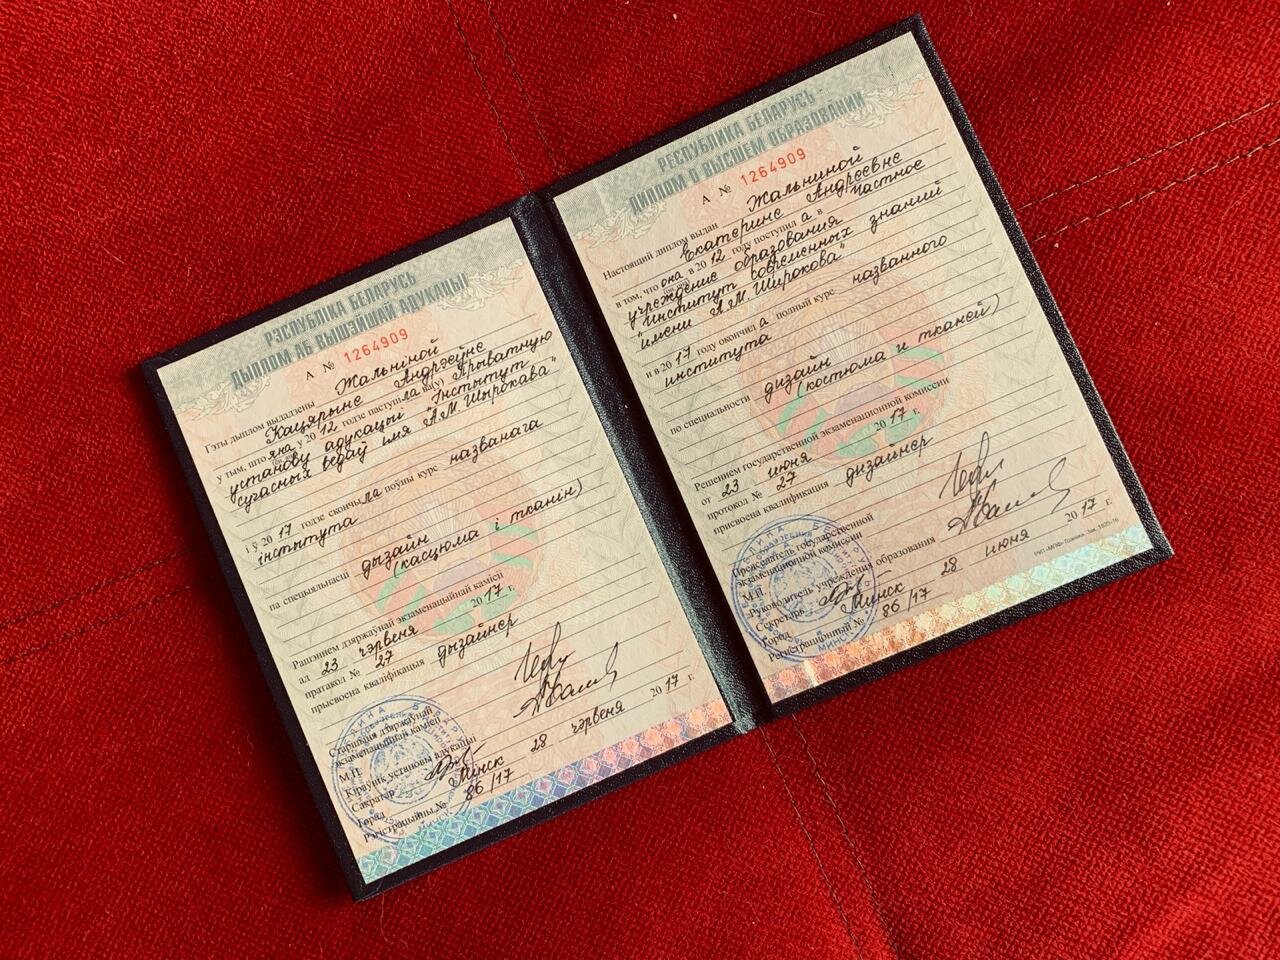 РЭСПУБЛІКА БЕЛАРУСЬ
ДЫПЛОМ АБ ВЫШЭЙШАЙ АДУКАЦЫІ
А № 1264909
Гэты дыплом выдадзены Жальніной
Кацярыне Андрэеўне
у тым, што яна у 2012 годзе паступіла ва(у) Прыватную
установу адукацыі "Інстытут
сучасных ведаў імя А.М. Шырокава"
і ў 2017 годзе скончыла поўны курс названага
інстытута
па спецыяльнасці дызайн
(касцюма і тканін)
Рашэннем дзяржаўнай экзаменацыйнай камісіі
ад 23 чэрвеня 2017 г.
пратакол № 27
прысвоена кваліфікацыя дызайнер
Старшыня дзяржаўнай
экзаменацыйнай камісіі
М.П.
Кіраўнік установы адукацыі
Сакратар
Горад Мінск 28 чэрвеня 2017 г.
Рэгістрацыйны № 86/17
РЕСПУБЛИКА БЕЛАРУСЬ
ДИПЛОМ О ВЫСШЕМ ОБРАЗОВАНИИ
А № 1264909
Настоящий диплом выдан Жальниной
Екатерине Андреевне
в том, что она в 2012 году поступила в частное
учреждение образования
"Институт современных знаний
имени А.М. Широкова"
и в 2017 году окончила полный курс названного
института
по специальности дизайн
(костюма и тканей)
Решением государственной экзаменационной комиссии
от 23 июня 2017 г.
протокол № 27
присвоена квалификация дизайнер
Председатель государственной
экзаменационной комиссии
М.П.
Руководитель учреждения образования
Секретарь
Город Минск 28 июня 2017 г.
Регистрационный № 86/17